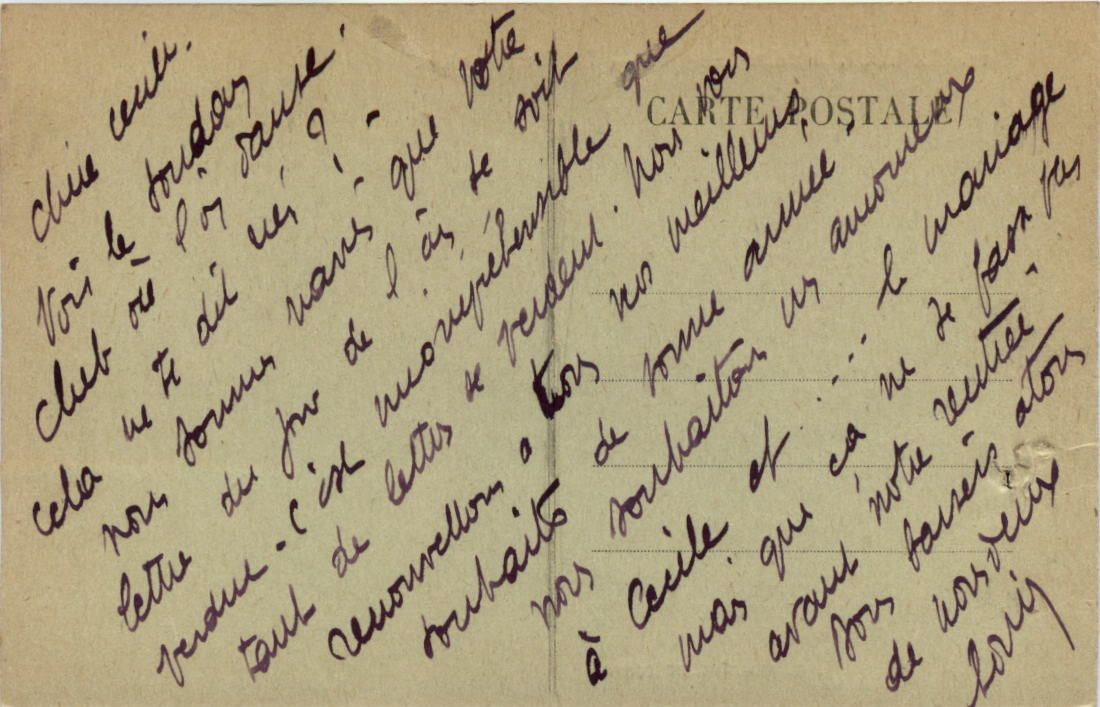 CARTE POSTALE
Chère Cecile.
Voir le
club où l'on danse.
cela ne te dit rien ?
nous sommes navrés que votre
lettre du jour de l'an se soit
perdue - c'est incompréhensible que
tant de lettres se perdent. Nous vous
renouvellons à tous nos meilleurs
souhaits de bonne année -
nous souhaitons un amoureux
à Cecile et ... le mariage
mais que ca ne se fasse pas
avant notre rentrée -
bons baisers a tous
de nous deux
Louis